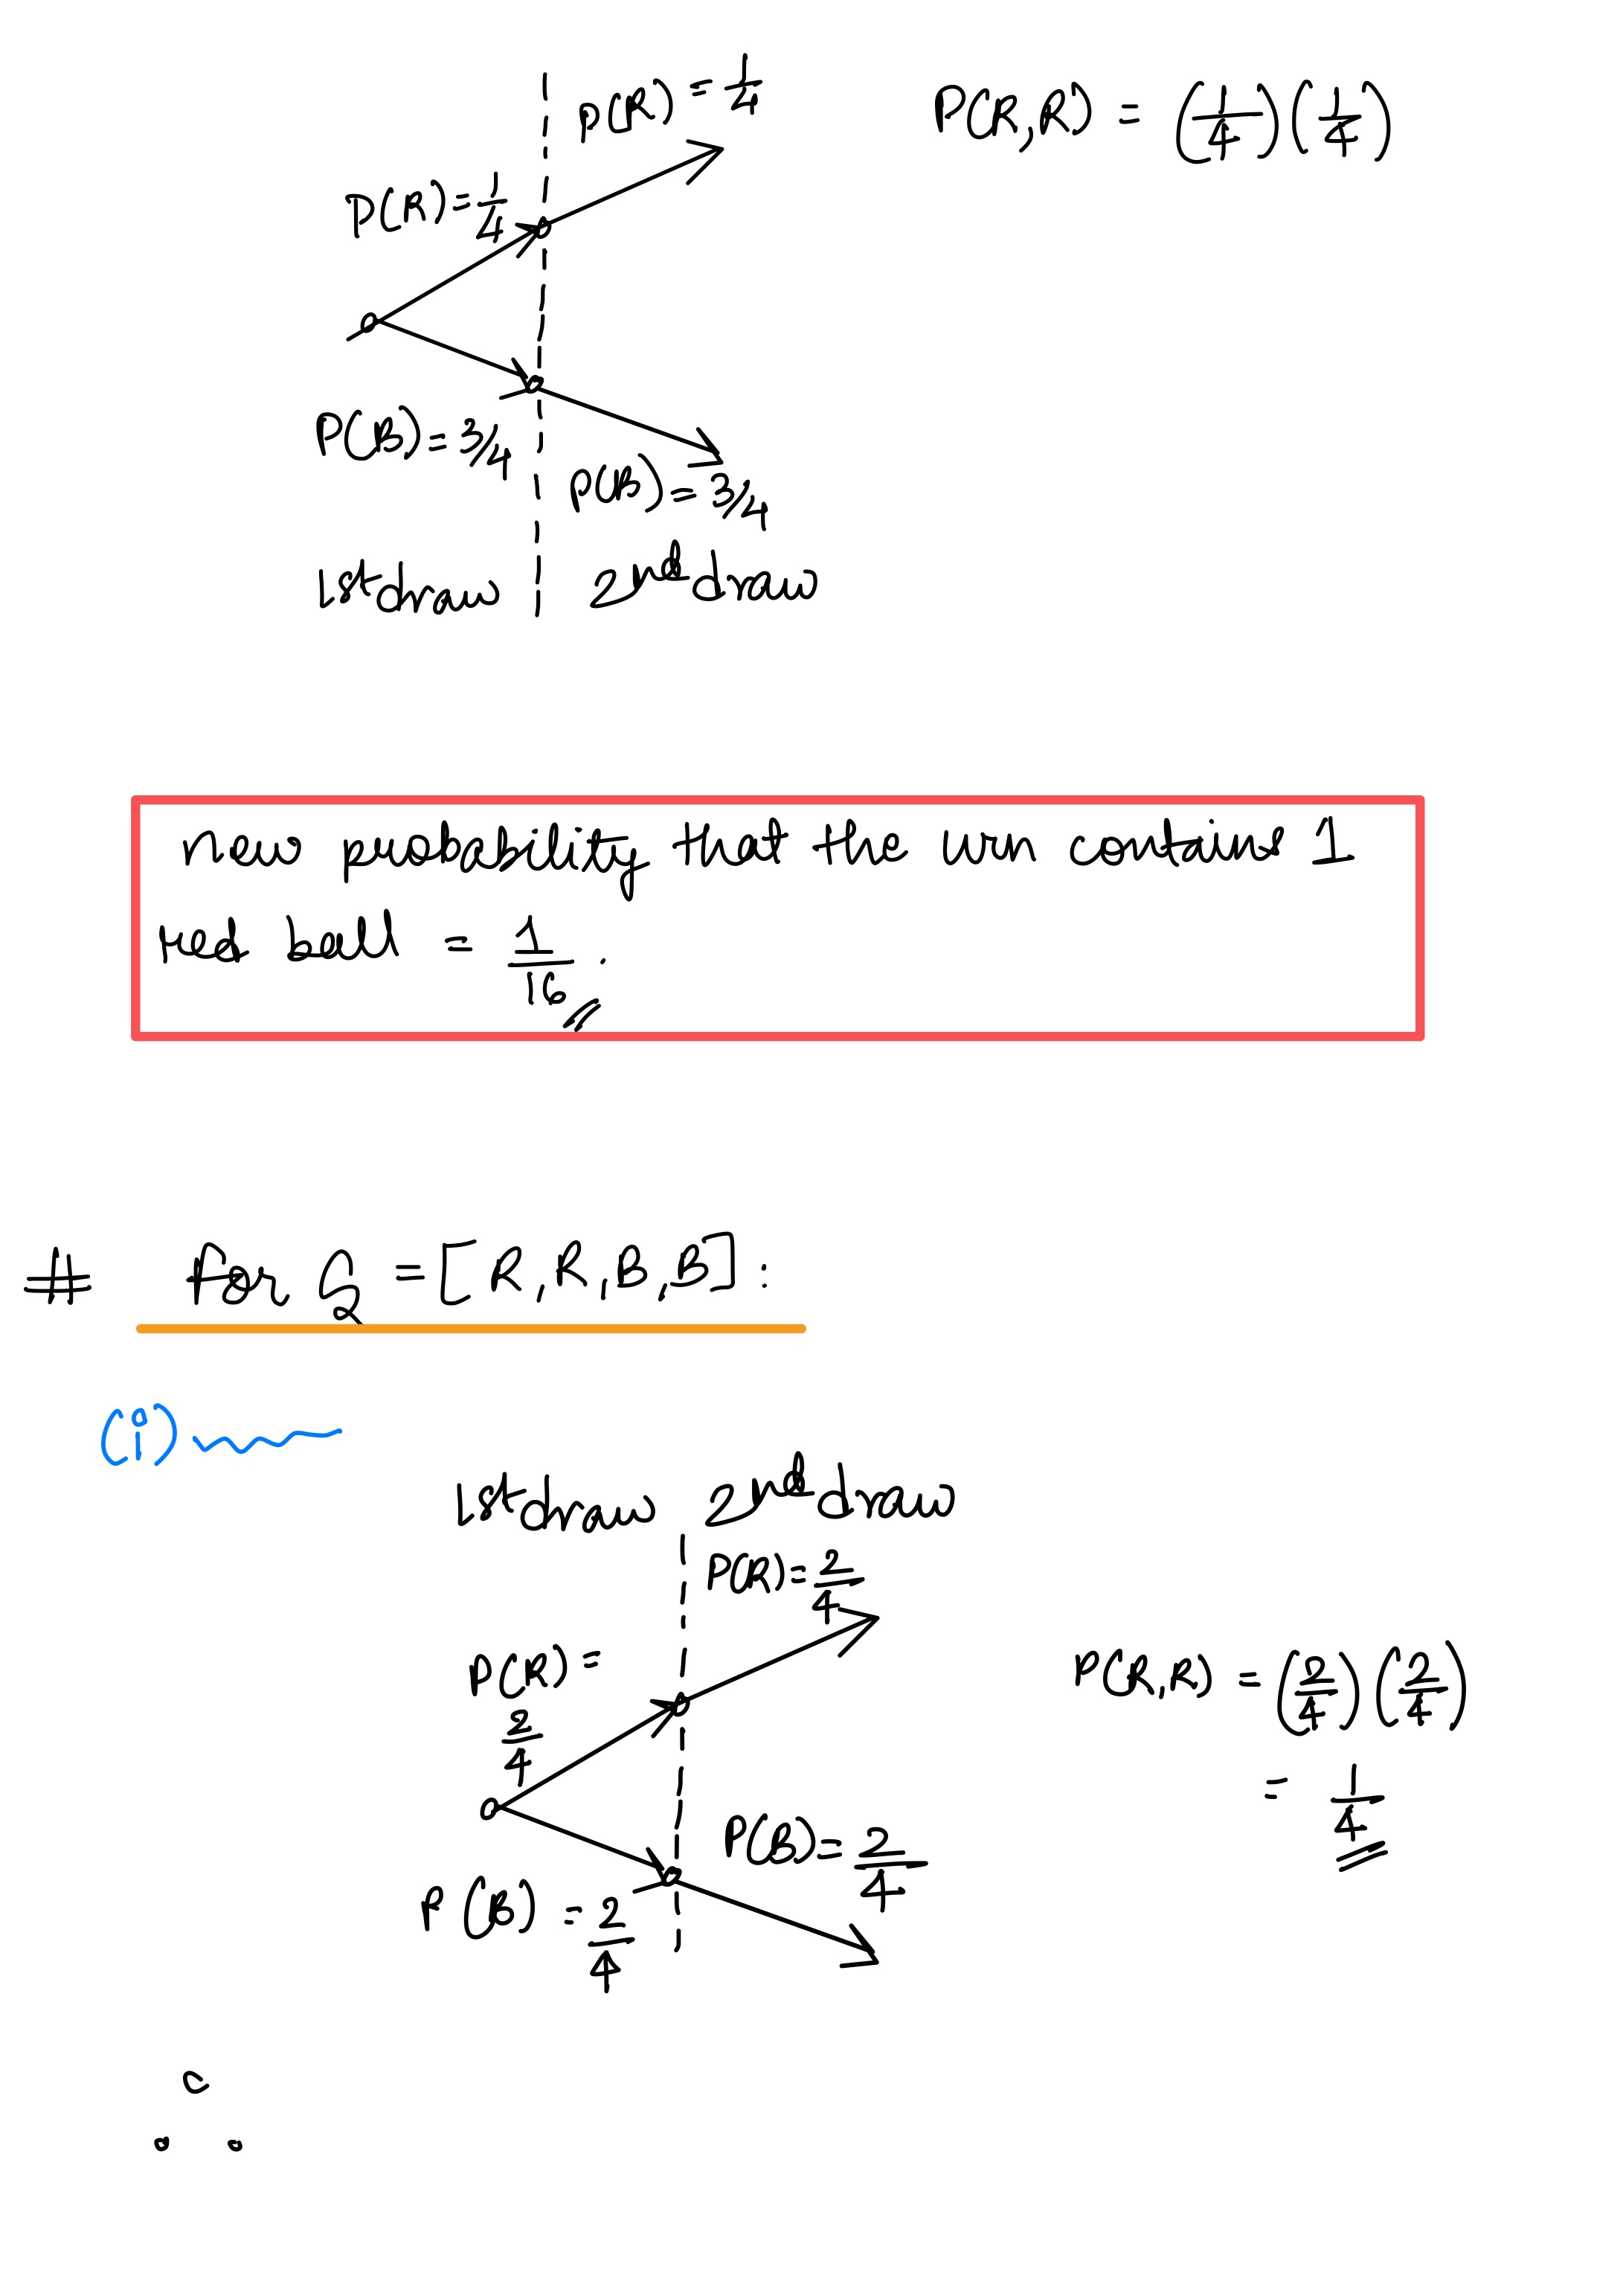 P(R) = 1/4
P(R,R) = (1/4)(1/4)
P(R) = 1/4
P(B) = 3/4
P(B) = 3/4
1st draw 2nd draw
now probability that the urn contains 1
red ball = 1/16.
# for G = [R,R,B,B]:
(i)
1st draw 2nd draw
P(R) = 2/4
P(R) = 2/4
P(R,R) = (2/4)(2/4)
= 1/4
P(B) = 2/4
P(B) = 2/4
∴